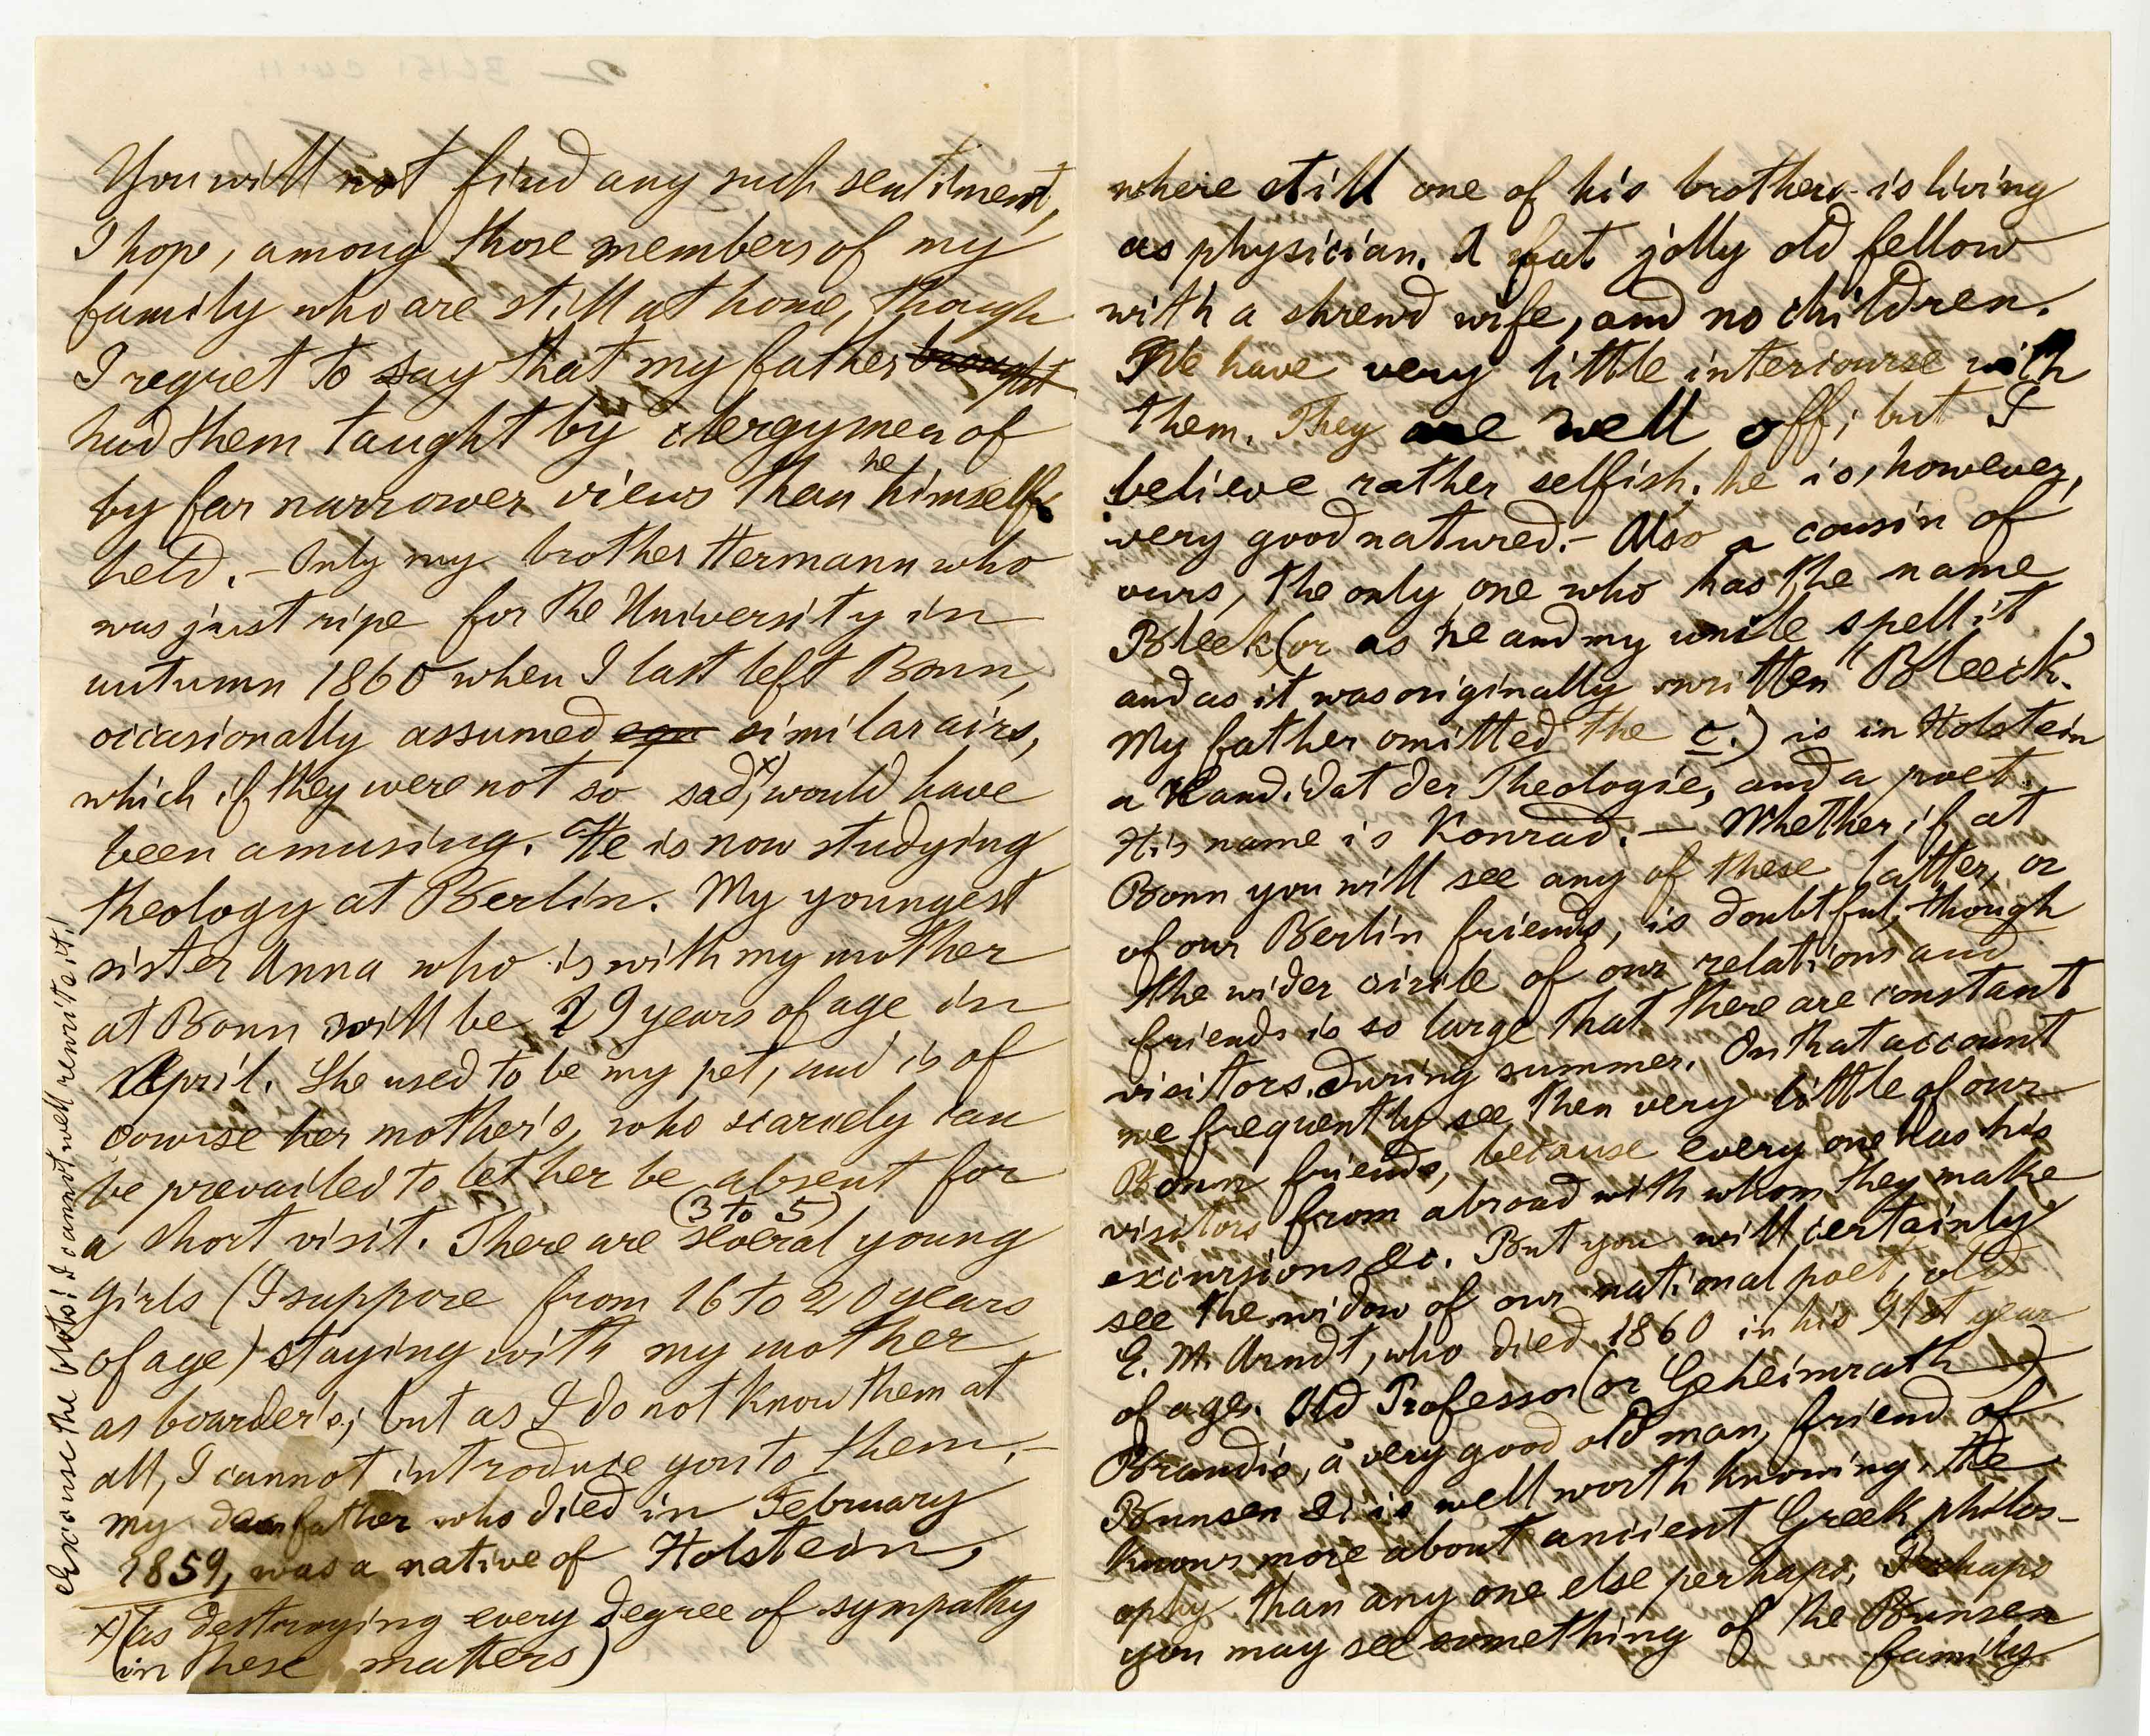 You will not find any such sentiment,
I hope, among those members of my
family who are still at home, though
I regret to say that my father brought
had them taught by clergymen of
by far narrower views than he himself
held. – Only my brother Hermann who
was just ripe for the University in
autumn 1860 when I last left Bonn,
occasionally assumed similar airs,
which if they were not so sad,x) would have
been amusing. He is now studying
theology at Berlin. My youngest
sister Anna who is with my mother
at Bonn will be 19 years of age in
April. She used to be my pet, and is of
cowrse her mother's, who scarcely can
be prevailed to let her be absent for
a short visit. There are several (3 to 5) young
girls (I suppose from 16 to 20 years
of age) staying with my mother
as boarders; but as I do not know them at
all, I cannot introduce you to them. –
my dear father who died in February
1859, was a native of Holstein,
x) (as destroying every degree of sympathy
in these matters)
Excuse the blots! I cannot well rewrite it!
where still one of his brothers is living
as physician. A fat jolly old fellow
with a shrewd wife, and no children.
We have very little intercourse with
them. They are well off; but I
believe rather selfish; he is, however,
very goodnatured. – Also a cousin of
ours, the only one who has the name
Bleek (or as he and my uncle spell it
and as it was originally written "Bleeck".
My father omitted the c.) is in Holstein
a Kandidat der Theologie, and a poet.
His name is Konrad. – Whether if at
Bonn you will see any of these latter, or
of our Berlin friends, is doubtful, though
the wider circle of our relations and
friends is so large that there are constant
visitors during summer. On that account
we frequently see then very little of our
Bonn friends, because every one has his
visitors from abroad with whom they make
excursions &c. But you will certainly
see the widow of our national poet, old
E. M. Arndt, who died 1860 in his 91st year
of age. Old Professor (or Geheimrath)
Brandis, a very good old man, friend of
Bunsen &c is well worth knowing. He
knows more about ancient Greek philos-
ophy than any one else perhaps. Perhaps
you may see something of the Bunsen
family